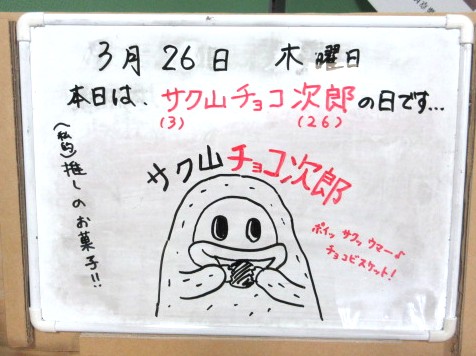 3月26日 木曜日
本日は、サク山チョコ次郎の日です…
(3) (26)
(私的)推しのお菓子!!
サク山チョコ次郎
ポイッ サクッ ウマー♪
チョコビスケット!